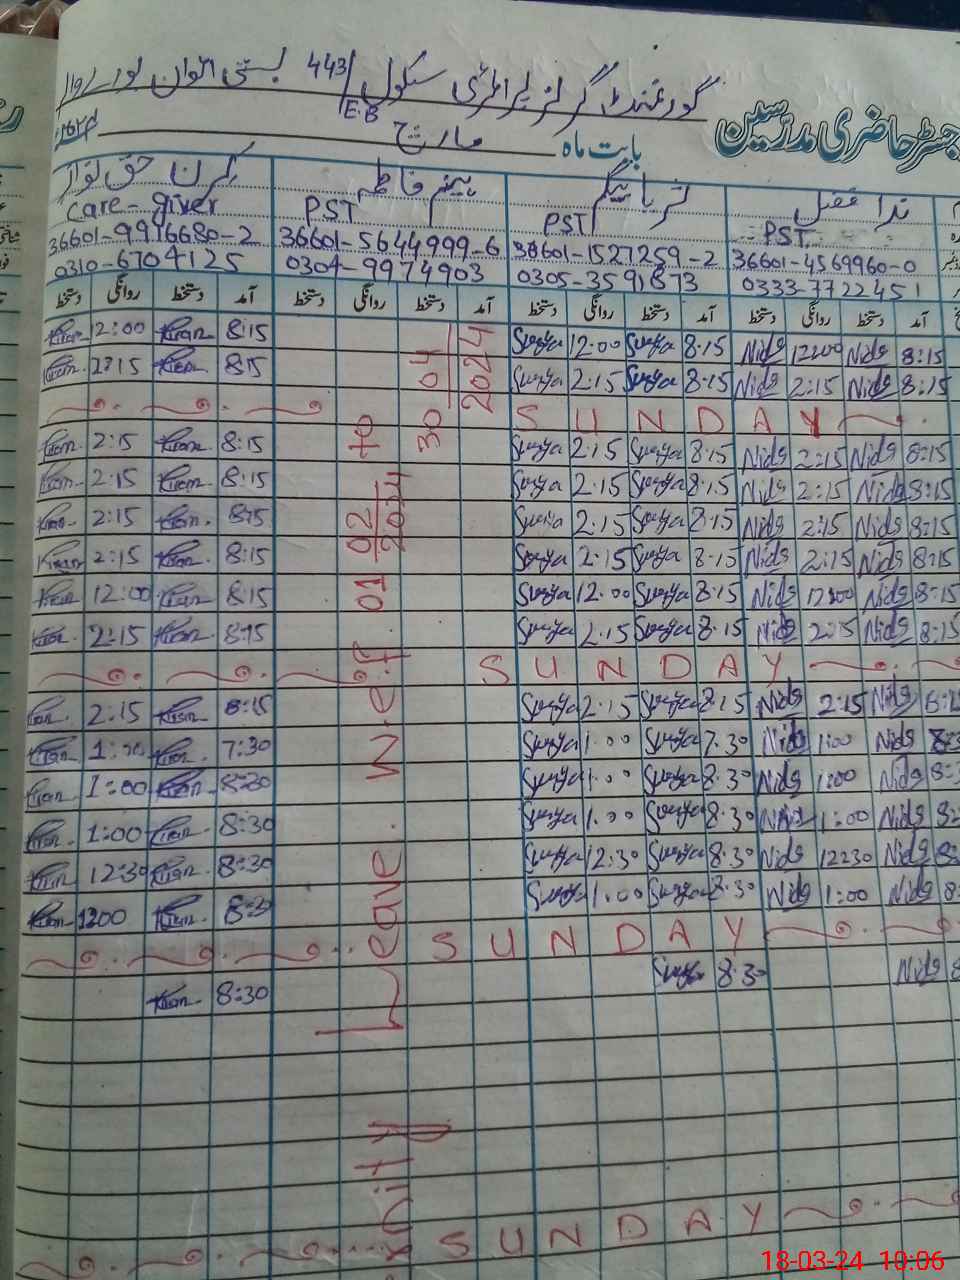 گورنمنٹ گرلز پرائمری سکول 443/E.B بستی
رجسٹر حاضری مدرسین بابت ماہ مارچ
ندا PST 36601-4569960-0 0333-7722451
ثریا بیگم PST 36601-1527259-2 0305-3591873
فاطمہ PST 36601-5644999-6 0304-9974903
کرن حق نواز Care-giver 36601-9916680-2 0310-6704125
آمد دستخط روانگی دستخط آمد دستخط روانگی دستخط آمد دستخط روانگی دستخط آمد دستخط روانگی دستخط
8:15 Nida 12:00 Nida 8.15 Surya 12.00 Surya 8:15 Kiran 12:00 Kiran
8:15 Nida 2:15 Nida 8.15 Surya 2.15 Surya 8:15 Kiran 2:15 Kiran
SUNDAY
8:15 Nida 2:15 Nida 8.15 Surya 2.15 Surya 8:15 Kiran 2:15 Kiran
8:15 Nida 2:15 Nida 8.15 Surya 2.15 Surya 8:15 Kiran 2:15 Kiran
8:15 Nida 2:15 Nida 8.15 Surya 2.15 Surya 8:15 Kiran 2:15 Kiran
8:15 Nida 2:15 Nida 8.15 Surya 2.15 Surya 8:15 Kiran 2:15 Kiran
8:15 Nida 12:00 Nida 8.15 Surya 12.00 Surya 8:15 Kiran 12:00 Kiran
8:15 Nida 2:15 Nida 8.15 Surya 2.15 Surya 8:15 Kiran 2:15 Kiran
SUNDAY
8:15 Nida 2:15 Nida 8.15 Surya 2.15 Surya 8:15 Kiran 2:15 Kiran
Nida 1:00 Nida 7.30 Surya 1.00 Surya 7:30 Kiran 1:00 Kiran
Nida 1:00 Nida 8.30 Surya 1.00 Surya 8:30 Kiran 1:00 Kiran
Nida 1:00 Nida 8.30 Surya 1.00 Surya 8:30 Kiran 1:00 Kiran
Nida 12:30 Nida 8.30 Surya 12.30 Surya 8:30 Kiran 12:30 Kiran
Nida 1:00 Nida 8.30 Surya 1.00 Surya 8:30 Kiran 1:00 Kiran
SUNDAY
Nida 8.30 Surya 8:30 Kiran
SUNDAY
Leave w.e.f 01-02-2024 to 30-04-2024
18-03-24 10:06